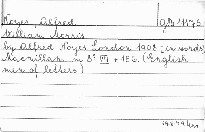 Noyes, Alfred
William Morris
by Alfred Noyes London 1908 (in words)
Macmillan in 8° III + 156. (English
men of letters)